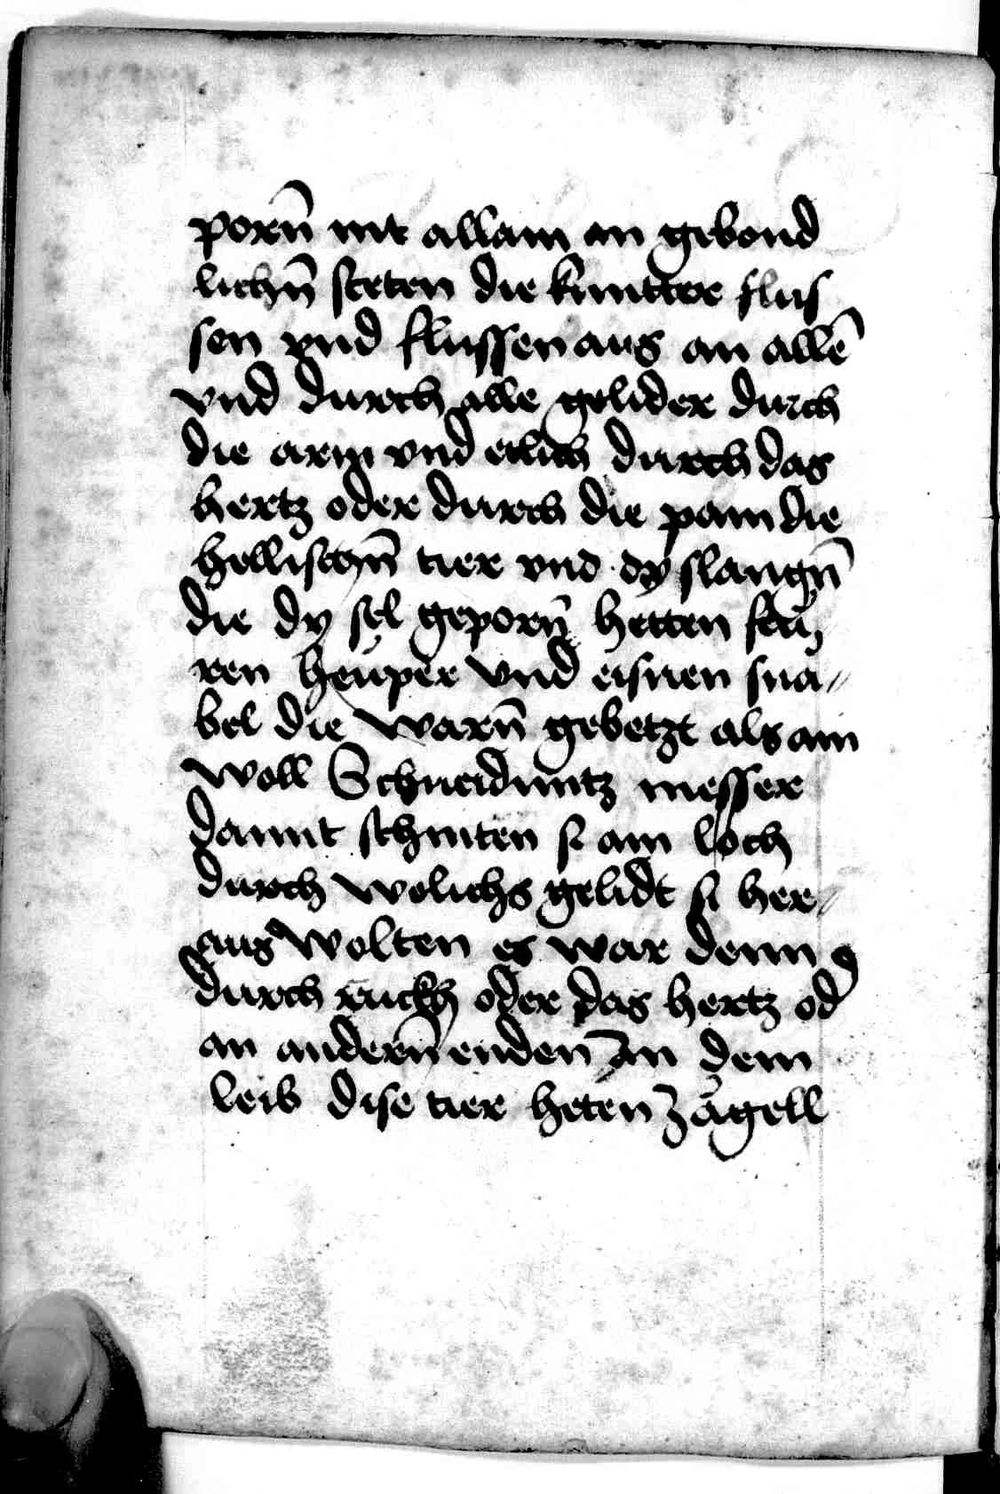 porn̄ nit allam an gebond
lichn̄ steten die kuntter flus
sen vnd flussen aus an allē
vnd durch alle gelider durch
die arm vnd etlich durch das
hertz oder durch die pain die
hellischn̄ tier vnd dy slangn̄
die dy sel geporn̄ hetten feu
ren heupter vnd eisnen sna⸗
bel die warn̄ gebetzt als ain
woll Schneiduntz messer
damit schniten si ain loch
durch welichs gelidt si her⸗
aus wolten es war denn
durch ruckh oder das hertz od
an andern̄ enden An dem
leib dise tier heten Zägell